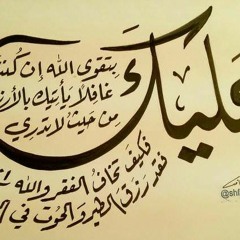 عليك
بتقوى الله إن كنت
غافلا يأتيك بالأرز
من حيث لا تدري
فكيف تخاف الفقر والله
فقد رزق الطير والحوت في
@sh